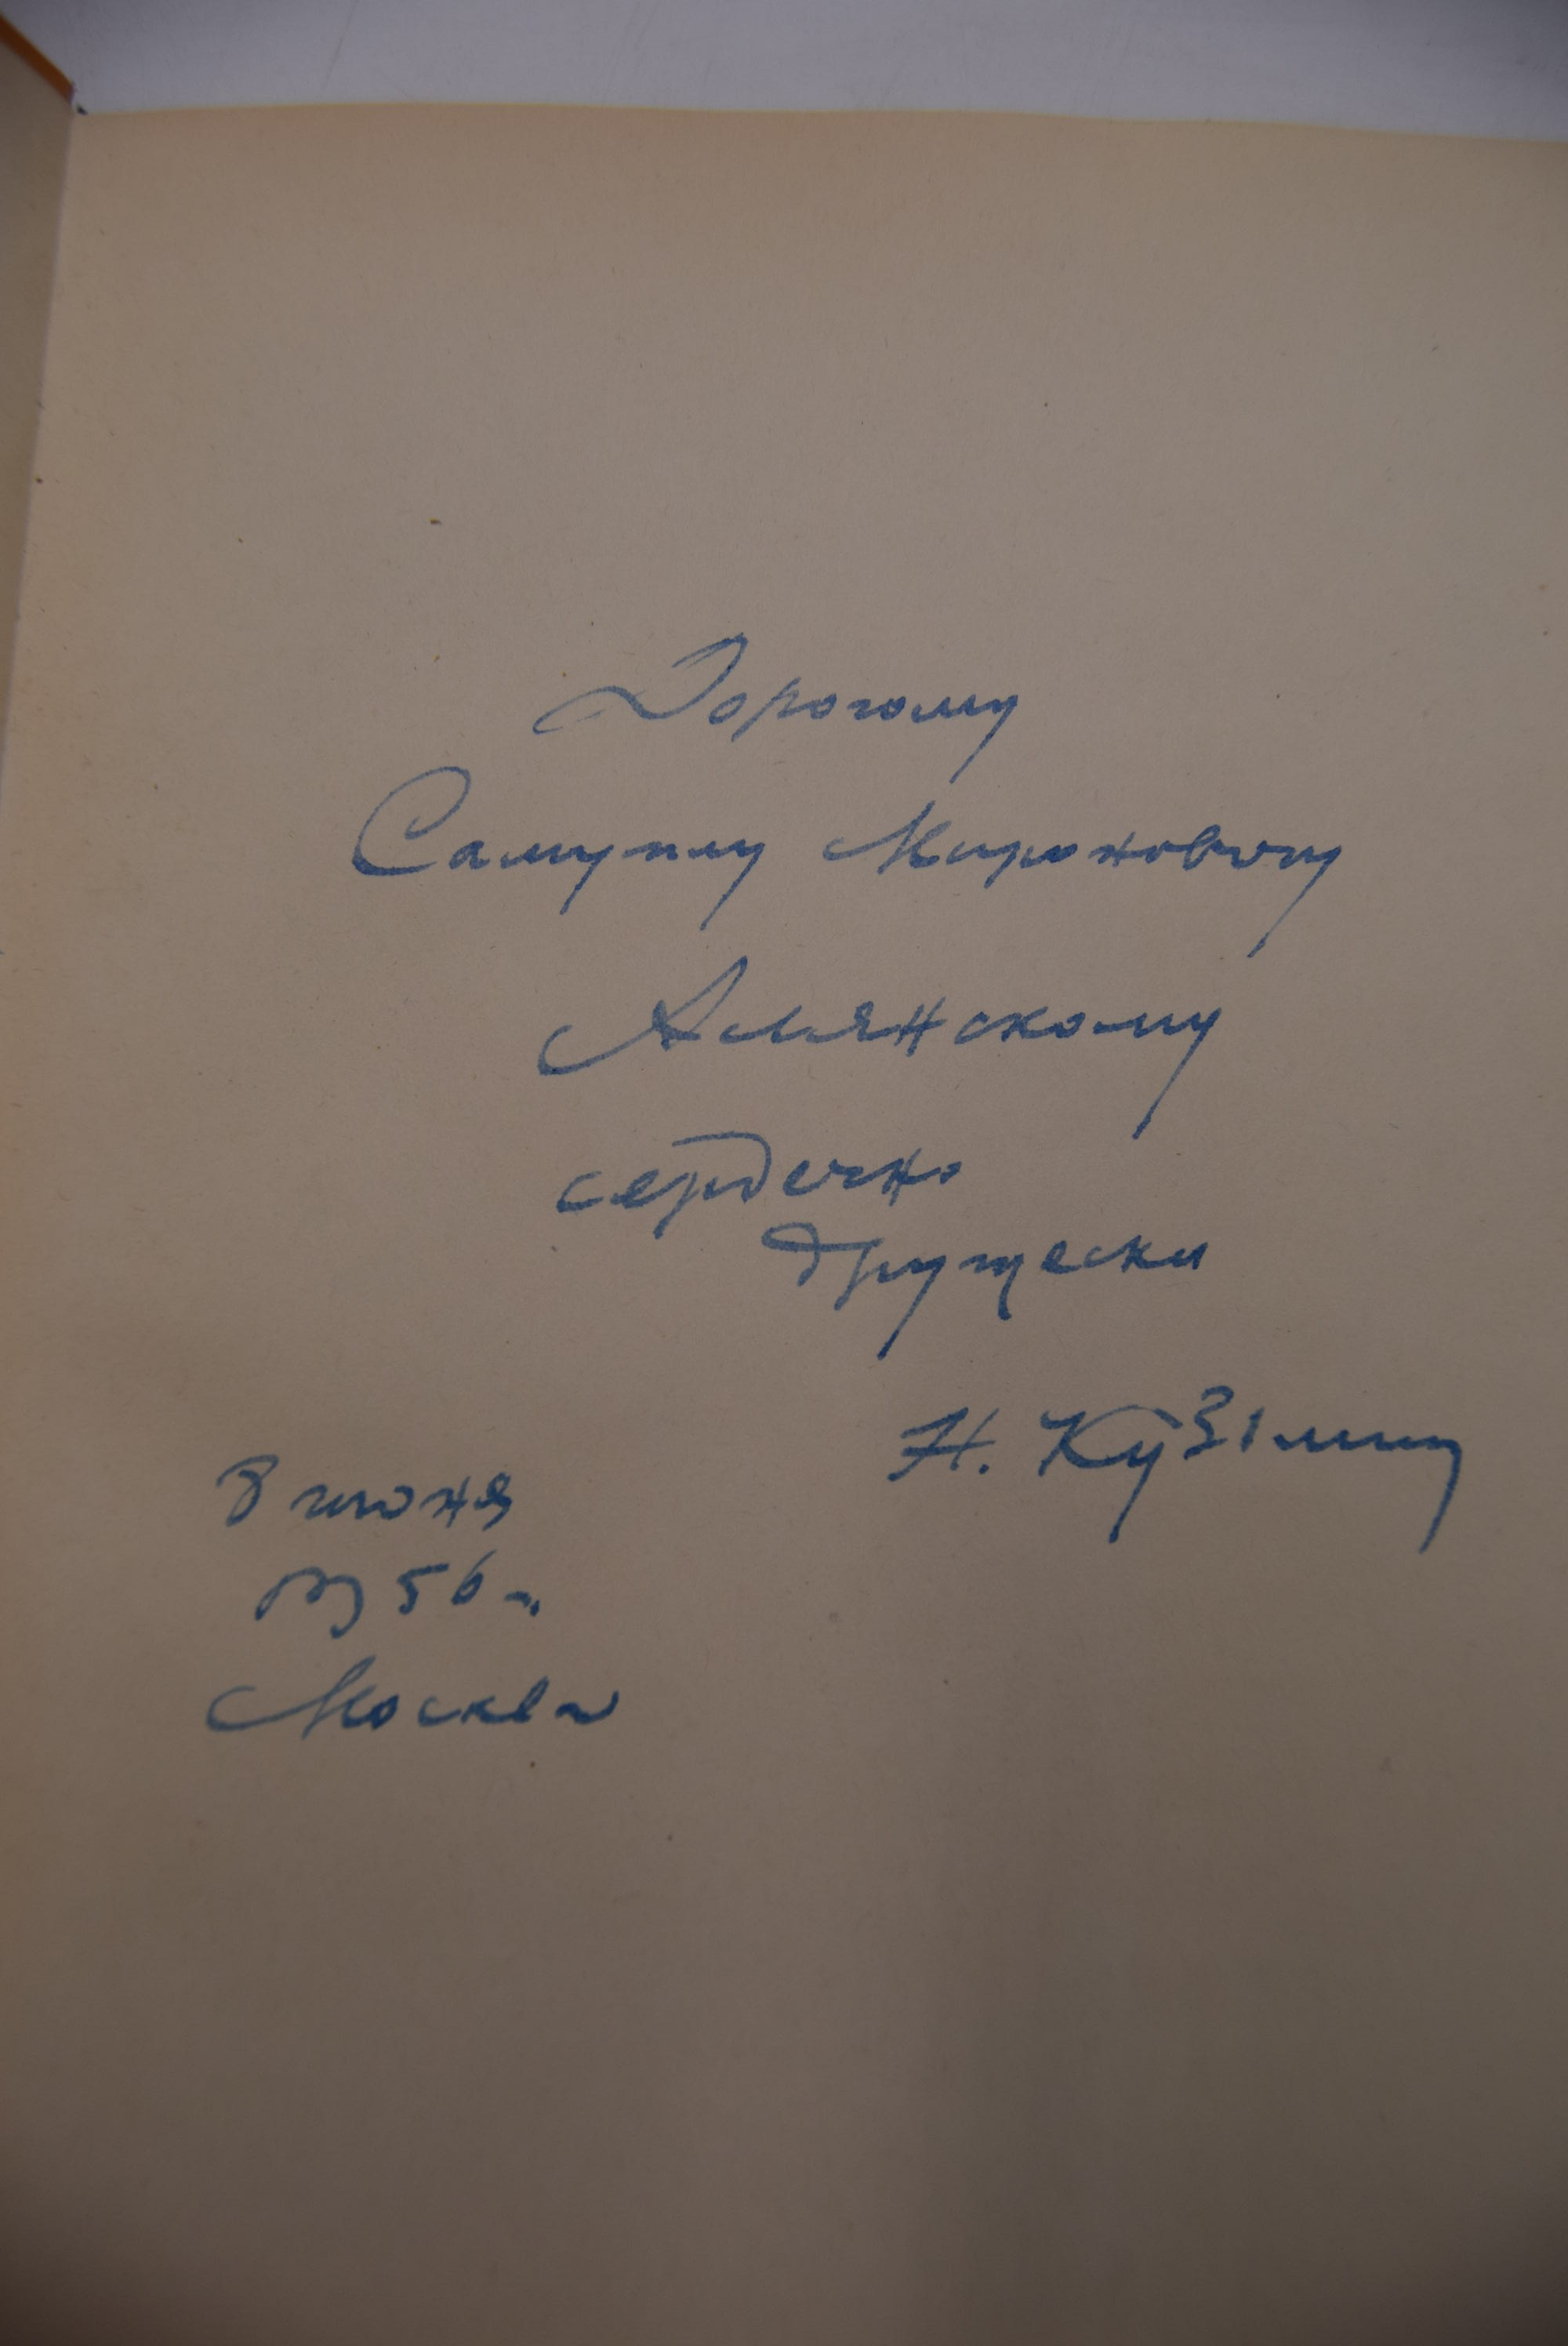 Дорогому
Самуилу Мироновичу
Алянскому
сердечно
дружески
Н. Кузьмин
8 июня
56 г.
Москва